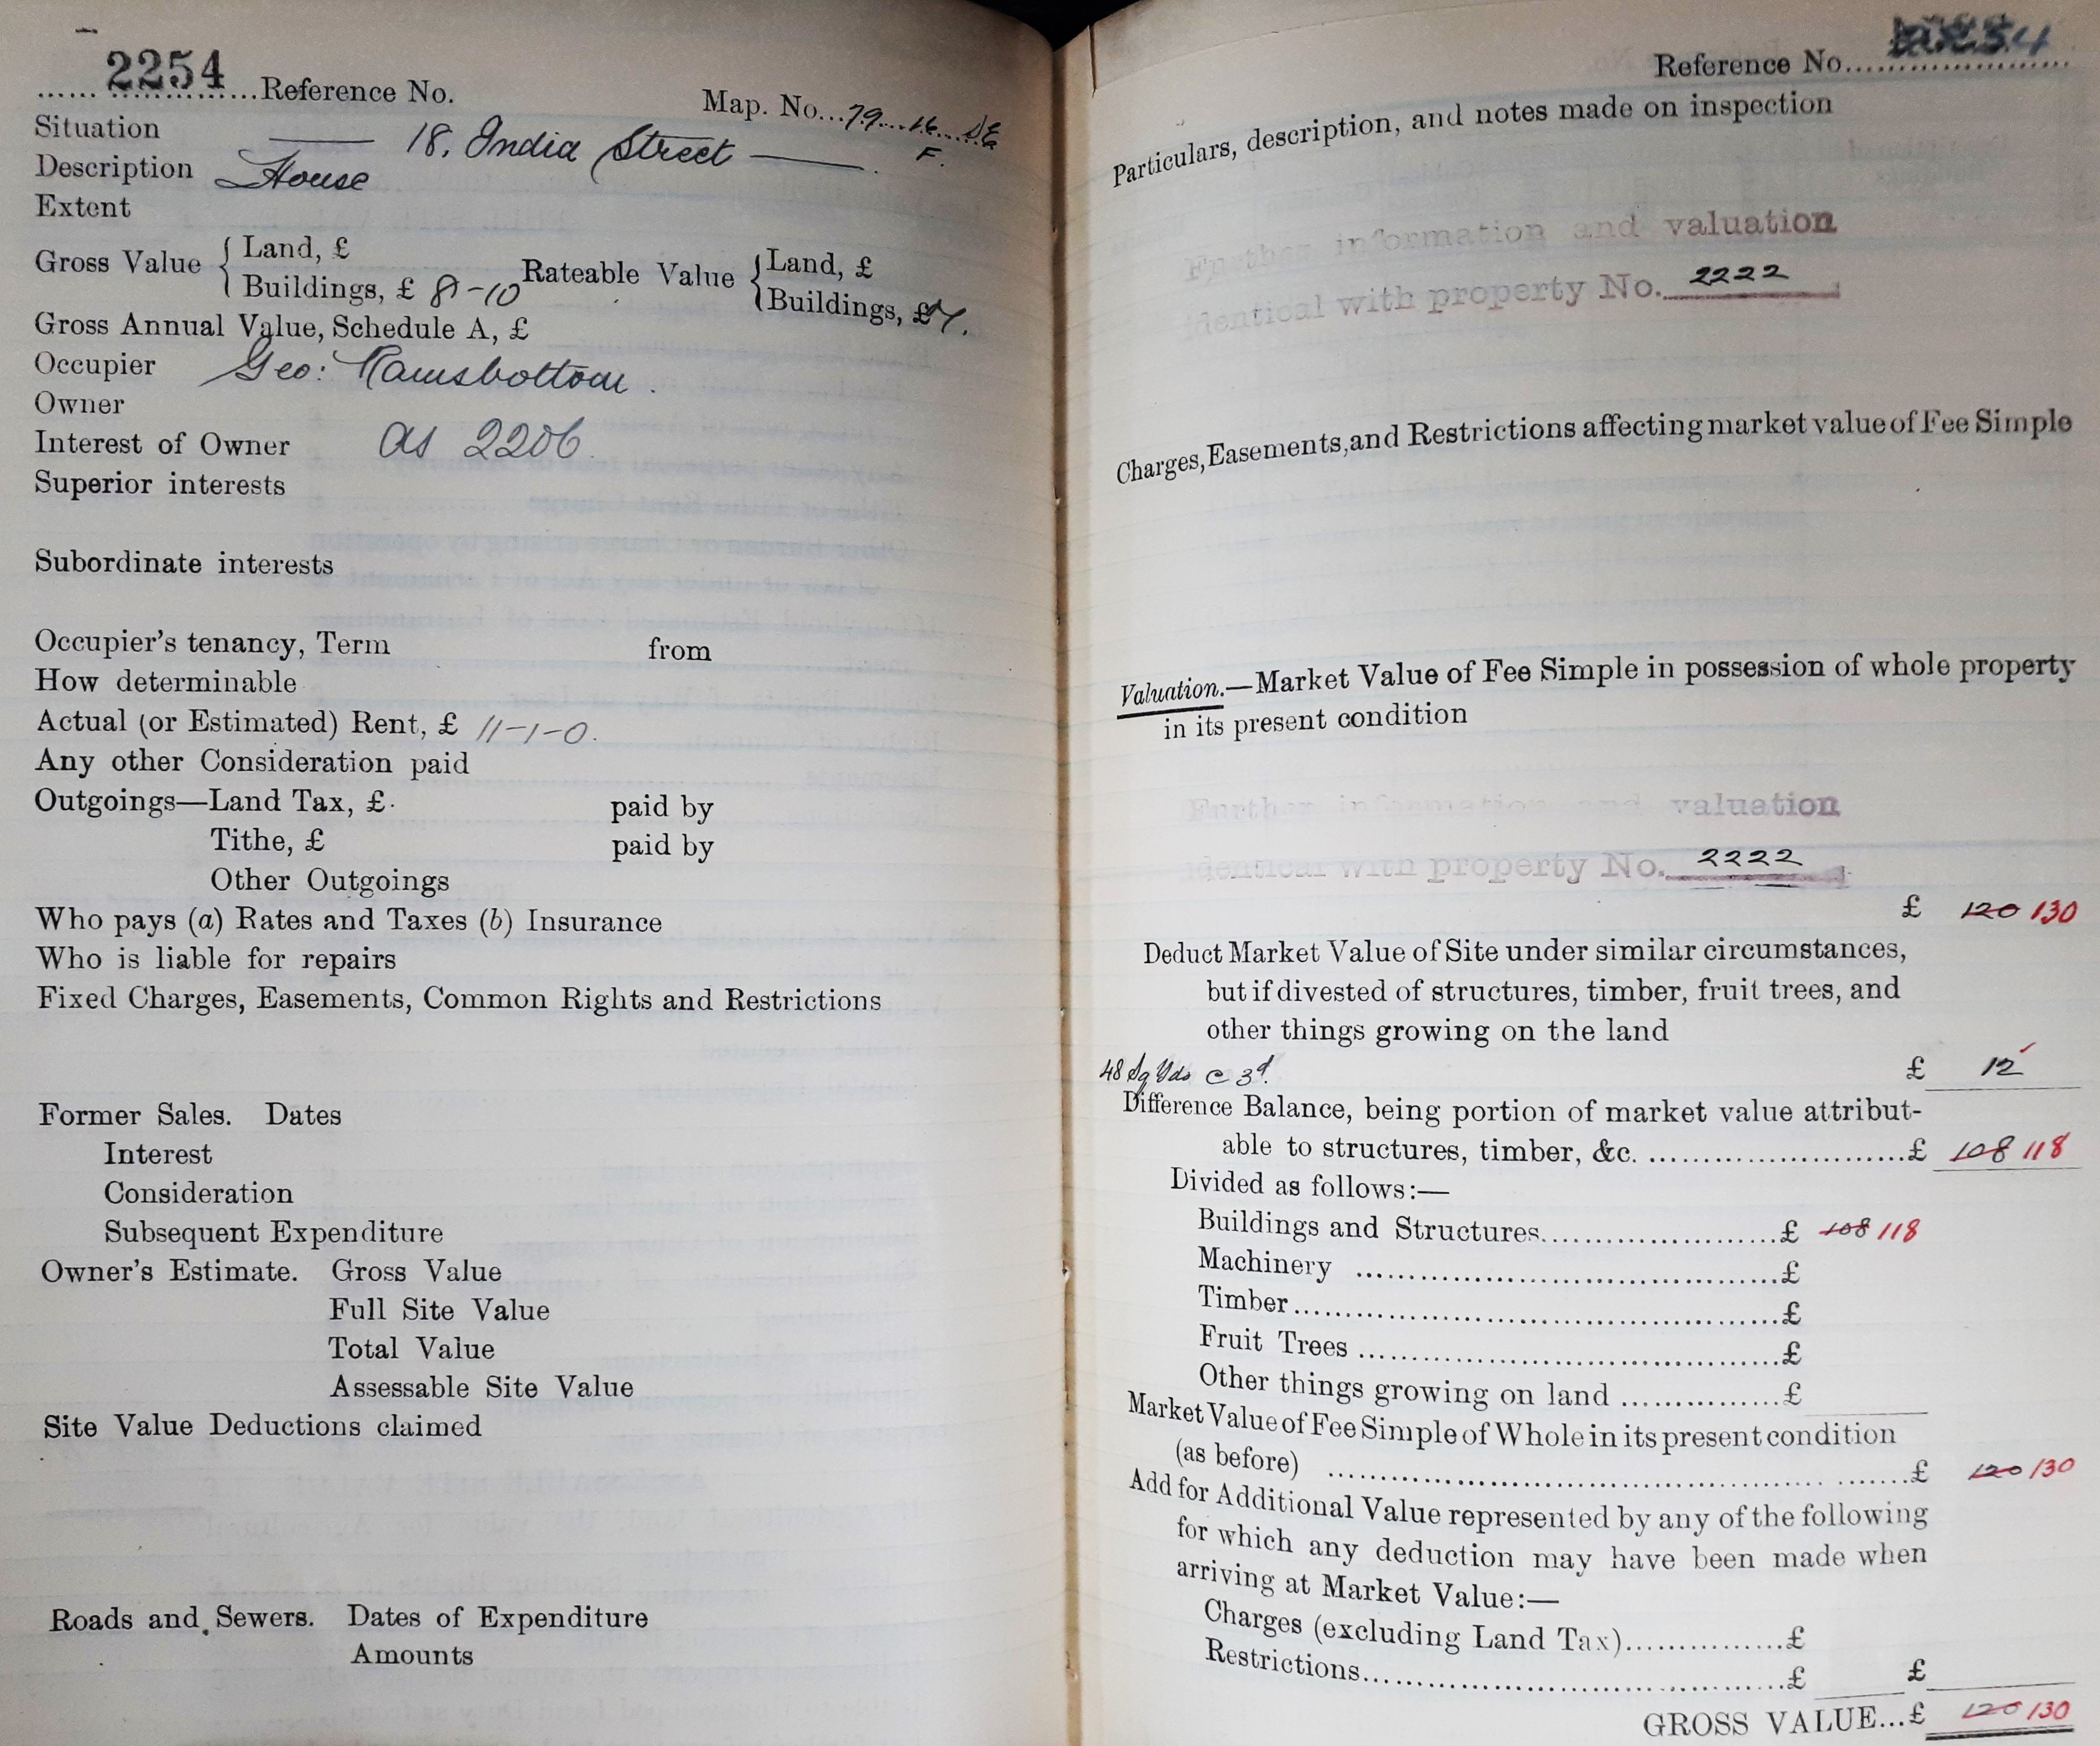 2254 Reference No. Map. No. 79 16 SE
F.
Situation 18, India Street
Description House
Extent
Gross Value { Land, £
Buildings, £ 8-10 Rateable Value { Land, £
Buildings, £ 7.
Gross Annual Value, Schedule A, £
Occupier Geo: Ramsbottom.
Owner
Interest of Owner as 2206.
Superior interests
Subordinate interests
Occupier's tenancy, Term from
How determinable
Actual (or Estimated) Rent, £ 11-1-0.
Any other Consideration paid
Outgoings—Land Tax, £ paid by
Tithe, £ paid by
Other Outgoings
Who pays (a) Rates and Taxes (b) Insurance
Who is liable for repairs
Fixed Charges, Easements, Common Rights and Restrictions
Former Sales. Dates
Interest
Consideration
Subsequent Expenditure
Owner's Estimate. Gross Value
Full Site Value
Total Value
Assessable Site Value
Site Value Deductions claimed
Roads and Sewers. Dates of Expenditure
Amounts
Reference No.
Particulars, description, and notes made on inspection
Further information and valuation
identical with property No. 2222
Charges, Easements, and Restrictions affecting market value of Fee Simple
Valuation.—Market Value of Fee Simple in possession of whole property
in its present condition
Further information and valuation
identical with property No. 2222
£ 120 130
Deduct Market Value of Site under similar circumstances,
but if divested of structures, timber, fruit trees, and
other things growing on the land
48 Sq Yds @ 3d. £ 12
Difference Balance, being portion of market value attribut-
able to structures, timber, &c. £ 108 118
Divided as follows:—
Buildings and Structures £ 108 118
Machinery £
Timber £
Fruit Trees £
Other things growing on land £
Market Value of Fee Simple of Whole in its present condition
(as before) £ 120 130
Add for Additional Value represented by any of the following
for which any deduction may have been made when
arriving at Market Value:—
Charges (excluding Land Tax) £
Restrictions £ £
GROSS VALUE...£ 120 130